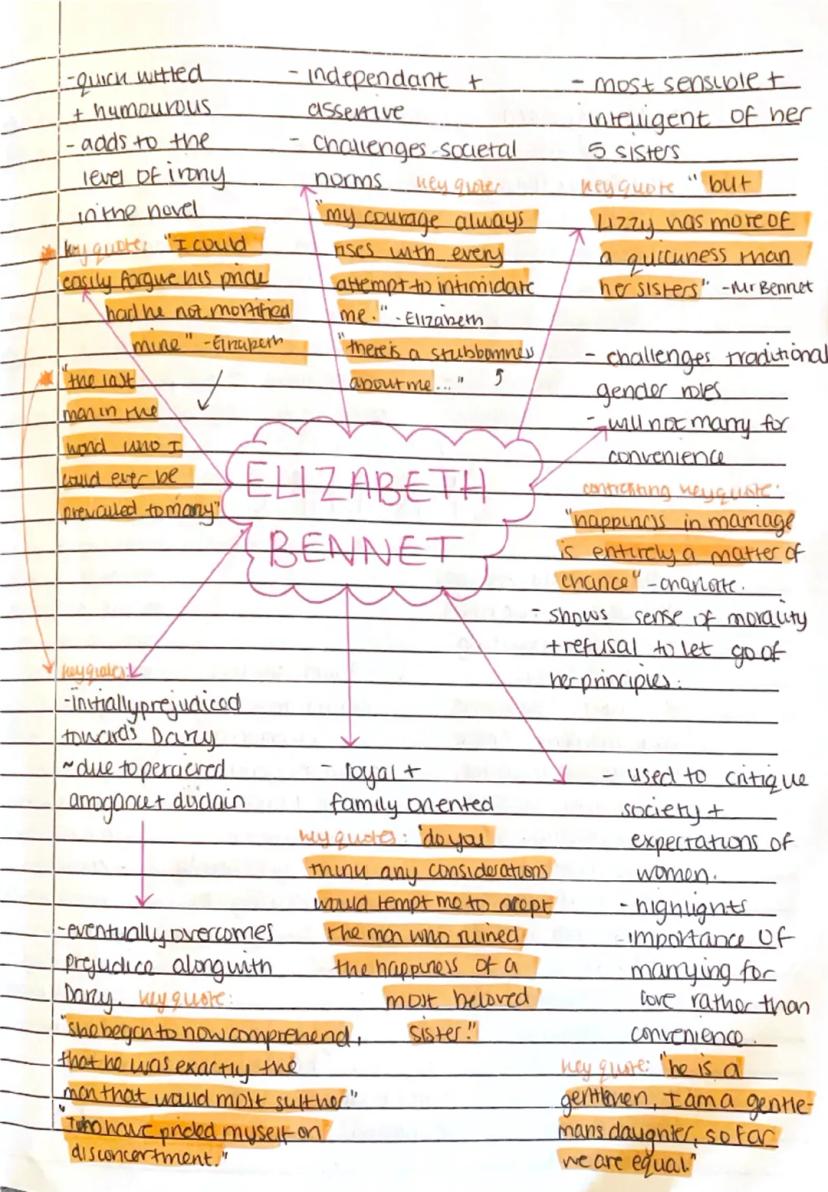 -quick witted
+ humourous
- adds to the
level of irony
in the novel
key quote: "I could
easily forgive his pride
had he not mortified
mine" -Elizabeth
"the last
man in the
world who I
could ever be
prevailed to marry"
- independant +
assertive
- challenges societal
norms key quote:
"my courage always
rises with every
attempt to intimidate
me." - Elizabeth
"there is a stubbornness
about me..."
- most sensible +
intelligent of her
5 sisters
key quote "but
Lizzy has more of
a quickness than
her sisters" -Mr Bennet
- challenges traditional
gender roles
- will not marry for
convenience
contrasting key quote:
"happiness in marriage
is entirely a matter of
chance" -charlotte.
- shows sense of morality
+refusal to let go of
her principles.
ELIZABETH
BENNET
key quotes:
-initially prejudiced
towards Darcy
~due to percieved
arrogance + disdain
-eventually overcomes
prejudice along with
Darcy. key quote:
"she began to now comprehend,
that he was exactly the
man that would most suit her"
"I who have prided myself on
discernment."
- loyal +
family oriented
key quote: 'do you
think any considerations
would tempt me to accept
the man who ruined
the happiness of a
most beloved
sister."
- used to critique
society +
expectations of
women.
- highlights
importance OF
marrying for
love rather than
convenience.
key quote: "he is a
gentleman, I am a gentle-
mans daughter, so far
we are equal"